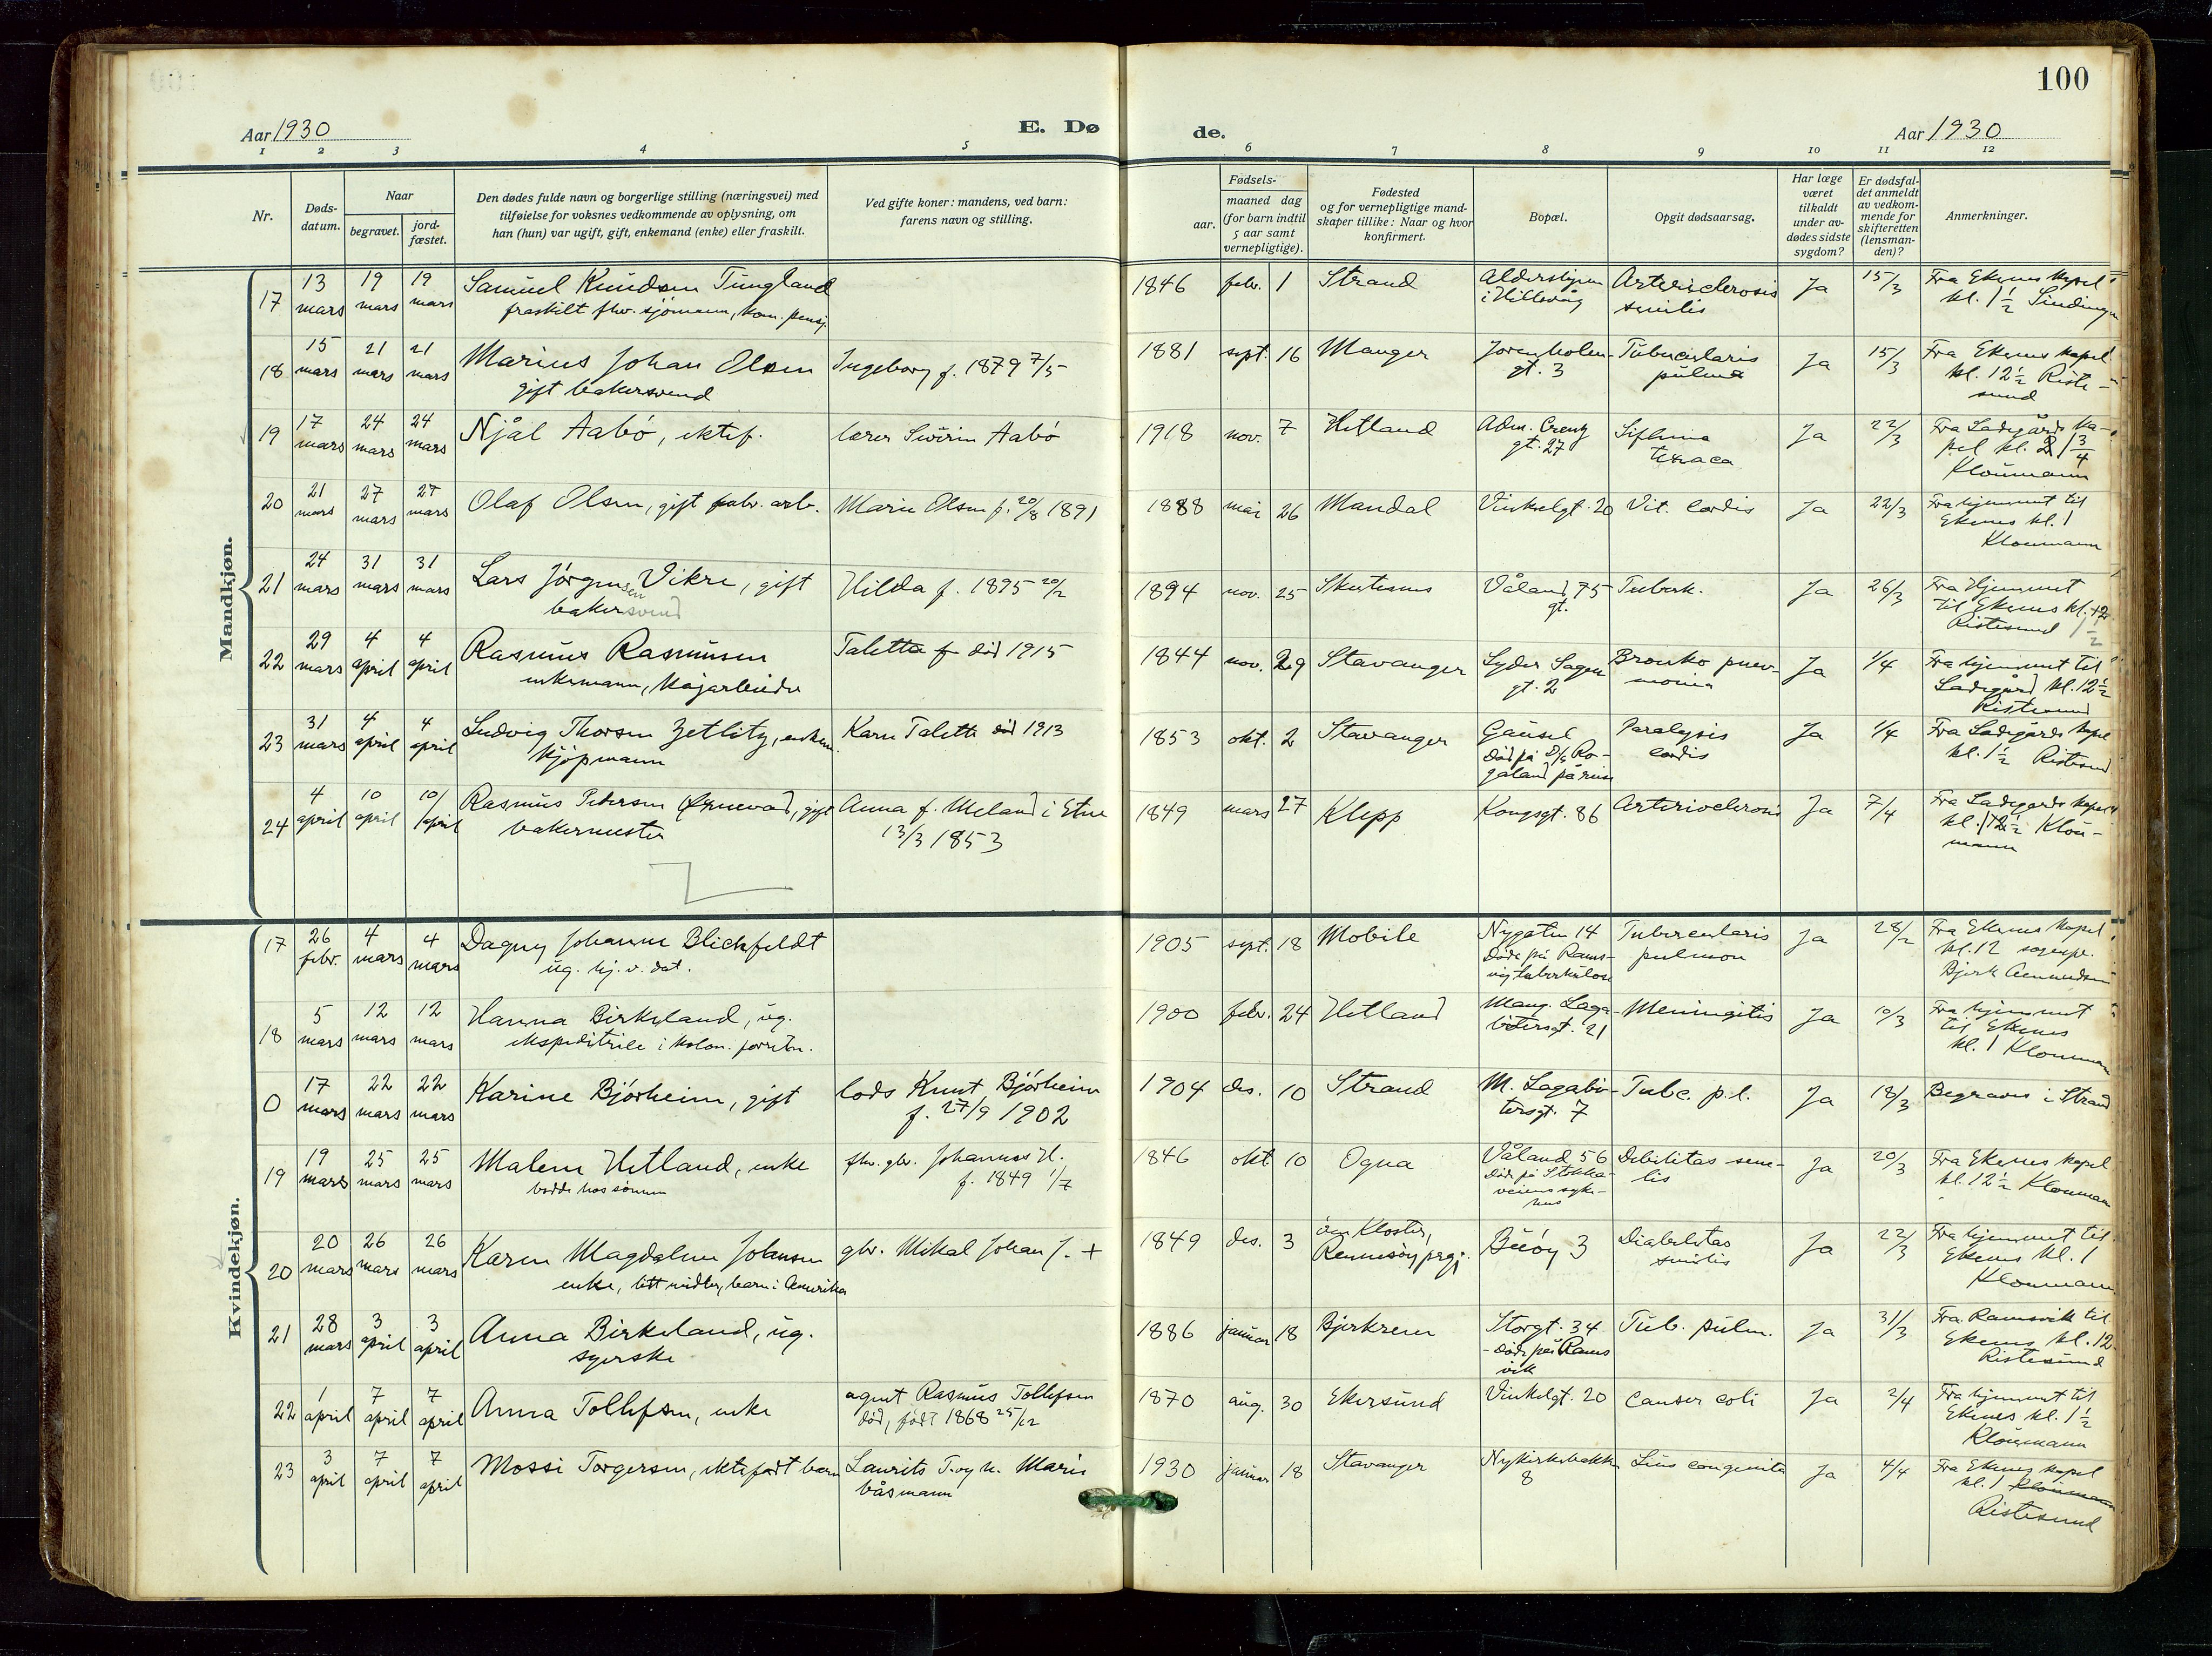 100
Aar 1930
E. Dø
de.
Aar 1930
1 2 3 4 5 6 7 8 9 10 11 12
Nr.
Døds-
datum.
Naar
begravet.
jord-
fæstet.
Den dødes fulde navn og borgerlige stilling (næringsvei) med
tilføielse for voksnes vedkommende av oplysning, om
han (hun) var ugift, gift, enkemand (enke) eller fraskilt.
Ved gifte koner: mandens, ved barn:
farens navn og stilling.
Fødsels-
aar.
maaned dag
(for barn indtil
5 aar samt
vernepligtige).
Fødested
og for vernepligtige mand-
skaper tillike: Naar og hvor
konfirmert.
Bopæl.
Opgit dødsaarsag.
Har læge
været
tilkaldt
under av-
dødes sidste
sygdom?
Er dødsfal-
det anmeldt
av vedkom-
mende for
skifteretten
(lensman-
den)?
Anmerkninger.
Mandkjøn.
17 13 mars 19 mars 19 mars Samuel Knudsen Tungland 1846 febr. 1 Strand Ja 15/3 Fra Ekenes kapel
fraskilt fhv. sjømann, kom. pensj. i Hillevåg senilis kl. 1 1/2
18 15 mars 21 mars 21 mars Marius Johan Olsen Ingeborg f. 1879 7/5 1881 sept. 16 Manger Jorenholen- Tubercularis Ja 15/3 Fra Ekenes kapel
gift bakersvend gt. 3 pulm. kl. 12 1/2 Riste-
sund
19 17 mars 24 mars 24 mars Njål Aabö, ektef. lærer Sivérin Aabö 1918 nov. 7 Hetland Adm. Creutz Ja 22/3 Fra Ladegårds ka-
gt. 27 pel kl. 1 3/4
Kloumann
20 21 mars 27 mars 27 mars Olaf Olsen, gift fabr. arb. Marie Olsen f. 20/8 1891 1888 mai 26 Mandal Vinkelgt. 20 Vit. cordis Ja 22/3 Fra hjemmet til
Ekenes kl. 1
Kloumann
21 24 mars 31 mars 31 mars Lars Jörgensen Vikre, gift Hilda f. 1895 20/2 1894 nov. 25 Våland 75 Tuberk. Ja 26/3 Fra Hjemmet
bakersvend gt. til Ekenes kl.
Ristesund
22 29 mars 4 april 4 april Rasmus Rasmussen Taletta død 1915 1844 nov. 29 Stavanger Lyder Sagen Bronko pnev- Ja 1/4 Fra hjemmet til
enkemann, kajarbeider gt. 2 monia Ladegård kl. 12 1/2
Ristesund
23 31 mars 4 april 4 april Ludvig Thorsen Zetlitz, enkem. Karn Taletta død 1913 1853 okt. 2 Stavanger Gausel Paralysis Ja 1/4 Fra Ladegårds kapel
kjøpmann død på D/S Ro- cordis kl. 1 1/2 Ristesund
galand på reise
24 4 april 10 april 10/april Rasmus Pedersen Ørnevad, gift Anna f. Meland i Etne 1849 mars 27 Klepp Kongsgt. 86 Arteriosclerosis Ja 7/4 Fra Ladegårds kapel
bakermester 13/3 1853 kl. 12 1/2 Klou-
mann
Kvindekjøn.
17 26 febr. 4 mars 4 mars Dagny Johanne Blichfeldt 1905 sept. 18 Mobile Nygaten 14 Tubercularis Ja 28/2 Fra Ekenes kapel
ug. hj. v. dat. døde på Rams- pulmon kl. 12 sognepr.
vig tuberkulose
18 5 mars 12 mars 12 mars Hanna Birkeland, ug. 1900 febr. 24 Hetland Mang. Laga- Meningitis Ja 10/3 Fra hjemmet
ekspeditrice i kolon. forretn. bötersgt. 21 til Ekenes
kl. 1 Kloumann
0 17 mars 22 mars 22 mars Karine Bjórheim, gift lods Knut Bjórheim 1904 des. 10 Strand M. Lagabö- Tubc. p.l. Ja 18/3 Begraves i Strand
f. 27/9 1902 tersgt. 7
19 19 mars 25 mars 25 mars Malene Hetland, enke fhv. gbr. Johannes H. 1846 okt 10 Ogna Våland 56 Debilitas seni- Ja 20/3 Fra Ekenes kapel
bodde hos sønnen f. 1849 1/7 død på Stokka- lis kl. 12 1/2 Kloumann
veiens syke-
hus
20 20 mars 26 mars 26 mars Karen Magdalene Johansen gbr. Mikal Johan J. + 1849 des. 3 Kloster, Buöy 3 Ja 22/3 Fra hjemmet til
enke, litt midler, barn i Amerika Rennesöy prgj. senilis Ekenes kl. 1
Kloumann
21 28 mars 3 april 3 april Anna Birkeland, ug. 1886 januar 18 Bjerkrem Storgt. 34 Tub. pulm. Ja 31/3 Fra Ramsvik til
syerske - døde på Rams Ekenes kl. 12
vik Ristesund
22 1 april 7 april 7 april Anna Tollefsen, enke agent Rasmus Tollefsen 1870 aug. 30 Ekersund Vinkelgt. 20 Canser coli Ja 2/4 Fra hjemmet til
død, født 1868 25/12 Ekenes kl. 1 1/2
Kloumann
23 3 april 7 april 7 april Mossi Torgersen, ektefødt barn Laurits T. og h. Marie 1930 januar 18 Stavanger Nykirkebakken Lues congenita Ja 4/4 Fra Ekenes kapel
båsmann 8 kl. 1 Kloumann
Ristesund